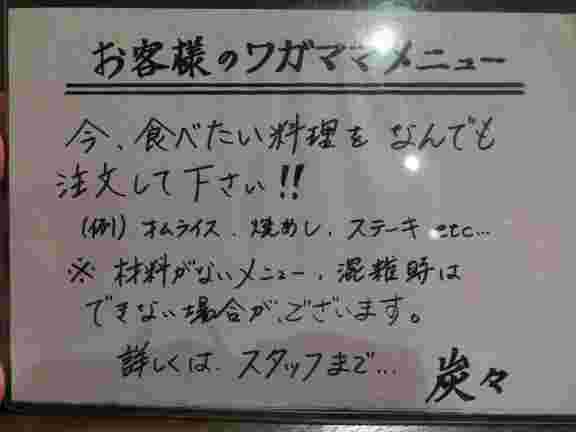 お客様のワガママメニュー
今、食べたい料理を なんでも
注文して下さい!!
(例) オムライス、焼めし、ステーキ etc...
※ 材料がないメニュー、混雑時は
できない場合が、ございます。
詳しくは、スタッフまで...
炭々